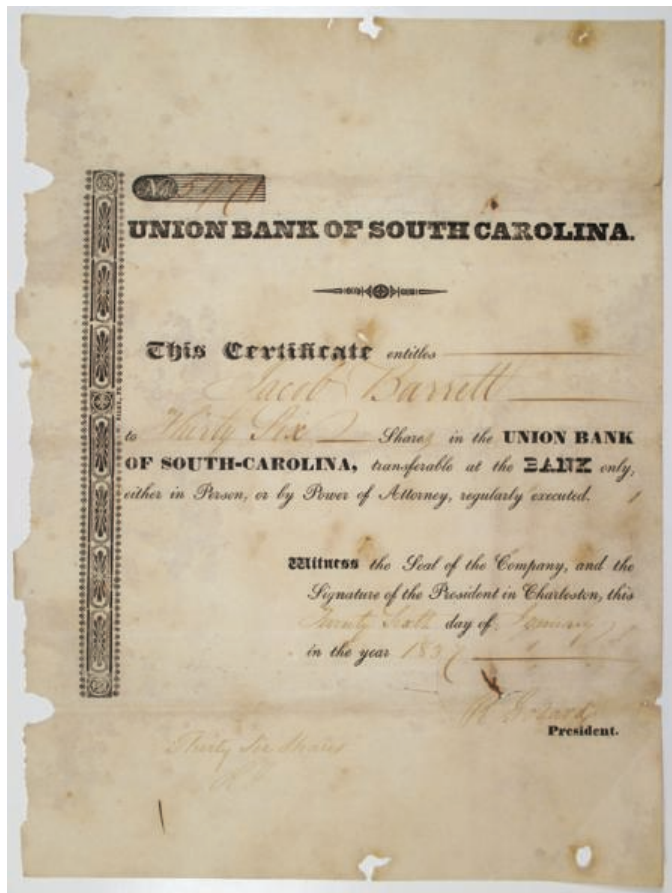 No 5471
UNION BANK OF SOUTH CAROLINA.
This Certificate entitles
Jacob Barrett
to Thirty Six Shares in the UNION BANK
OF SOUTH-CAROLINA, transferable at the BANK only,
either in Person, or by Power of Attorney, regularly executed.
Witness the Seal of the Company, and the
Signature of the President in Charleston, this
Twenty Sixth day of January
in the year 1837
President.
Thirty Six Shares